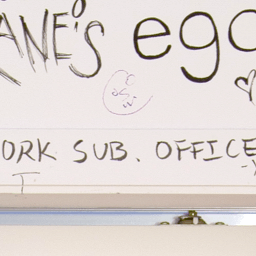 ANE'S ego
ORK SUB. OFFICE
T